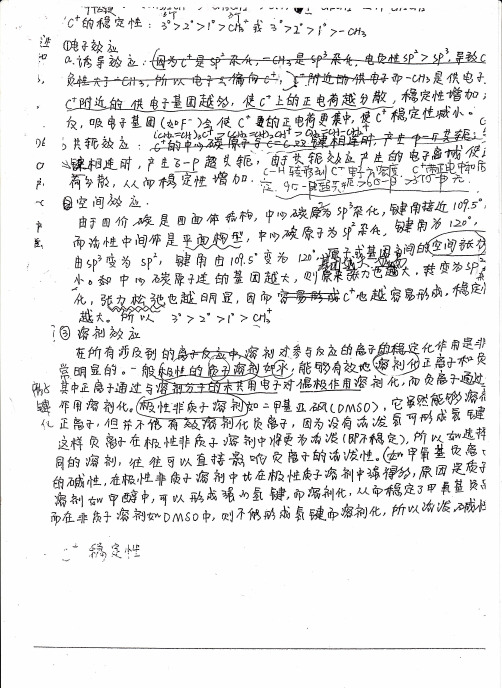 C⁺的稳定性: 3°>2°>1°>CH₃⁺ 或 3°>2°>1°>-CH₃
①电子效应
a.诱导效应: 因为C⁺是sp²杂化, -CH₃是sp³杂化, 电负性sp²>sp³, 导致C
负性大于-CH₃, 所以电子云偏向C⁺, C⁺附近的供电子而-CH₃是供电子,
C⁺附近的供电子基团越多, 使C⁺上的正电荷越分散, 稳定性增加;
反, 吸电子基团(如F⁻)会使C⁺的正电荷更集中, 使C⁺稳定性减小。
b.共轭效应: C⁺的中心碳原子与
键相连时, 产生σ-p超共轭, 由于共轭效应产生的电子离域使
荷分散, 从而稳定性增加.
②空间效应.
由于四价碳是四面体结构, 中心碳原为sp³杂化, 键角接近109.5°,
而活性中间体是平面构型, 中心碳原子为sp²杂化, 键角为120°,
由sp³变为sp², 键角由109.5°变为120° 原子或基团之间的空间张力
小。如中心碳原子连的基团越大, 则原来张力也越大, 转变为sp²杂
化, 张力松弛也越明显, 因而容易形成C⁺也越容易形成, 稳定性
越大。所以 3°>2°>1°>CH₃⁺
?③溶剂效应
在所有涉及到的离子反应中, 溶剂对参与反应的离子的稳定化作用是非
常明显的。一般极性的质子溶剂如水, 能够有效地溶剂化正离子和负
其中正离子通过与溶剂分子的未共用电子对偶极作用溶剂化, 而负离子通过
作用溶剂化。极性非质子溶剂如二甲基亚砜(DMSO), 它虽然能够溶剂
正离子, 但并不能有效溶剂化负离子, 因为没有活泼氢可形成氢键
这样负离子在极性非质子溶剂中将更为活泼(即不稳定), 所以如选择
同的溶剂, 往往可以直接影响负离子的活泼性。(如甲氧基负离
的碱性, 在极性非质子溶剂中比在极性质子溶剂中强得多, 原因是质子
溶剂如甲醇中, 可以形成强的氢键, 而溶剂化, 从而稳定了甲氧基负
而在非质子溶剂如DMSO中, 则不能形成氢键而溶剂化, 所以活泼碱性
C⁺稳定性